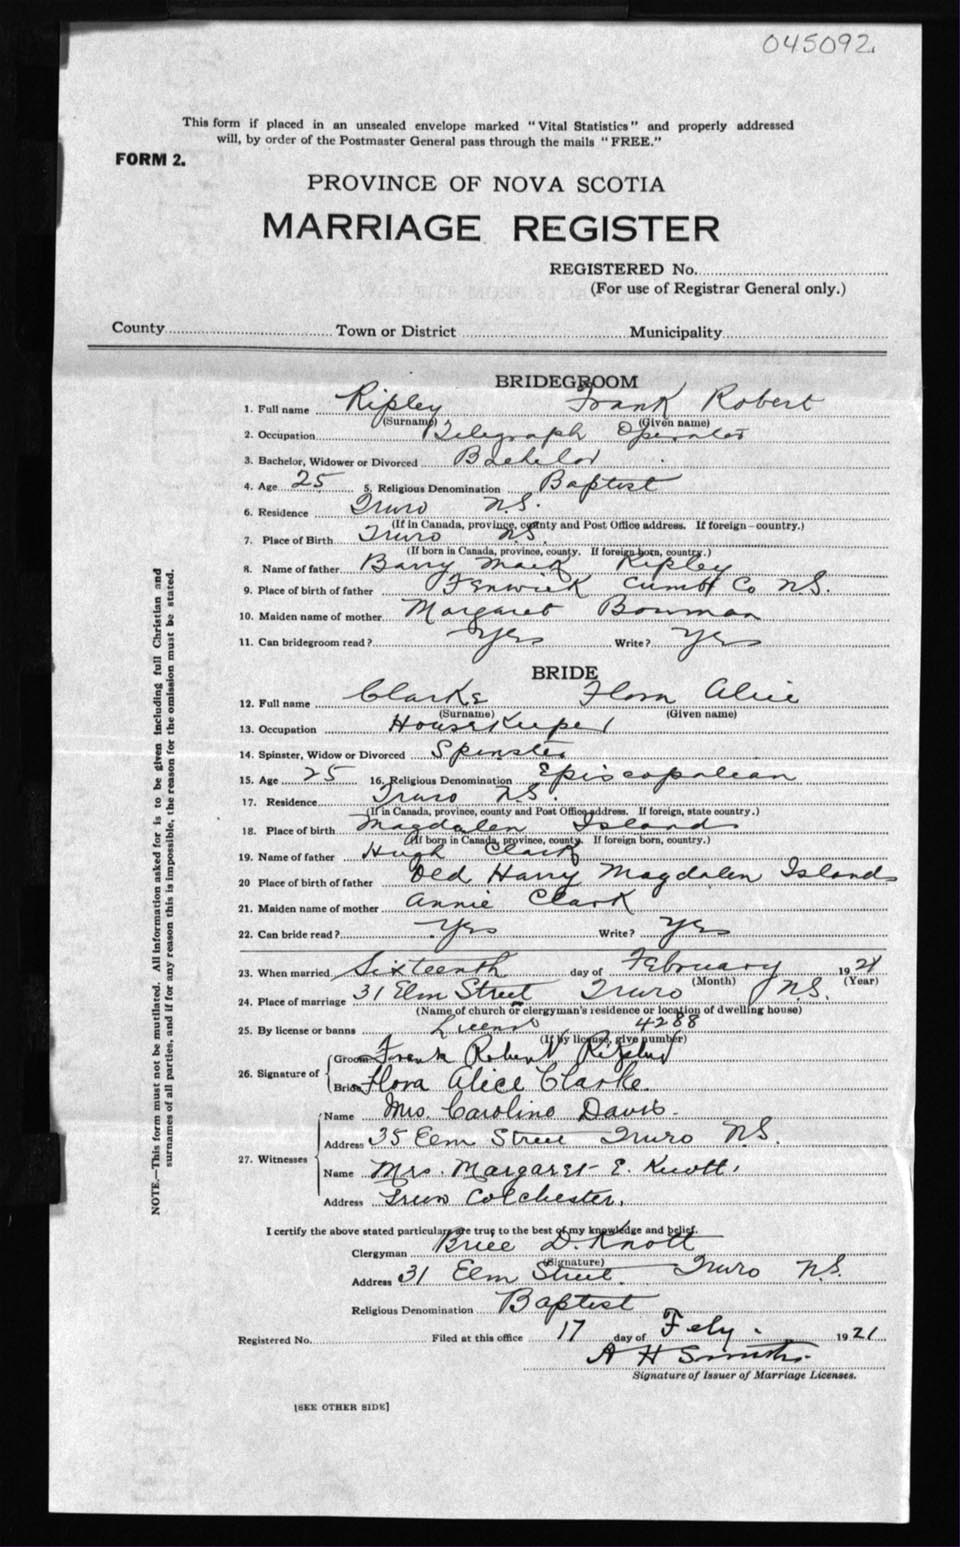 045092
This form if placed in an unsealed envelope marked "Vital Statistics" and properly addressed
will, by order of the Postmaster General pass through the mails "FREE."
FORM 2.
PROVINCE OF NOVA SCOTIA
MARRIAGE REGISTER
REGISTERED No.
(For use of Registrar General only.)
County Town or District Municipality
BRIDEGROOM
1. Full name Ripley Frank Robert
(Surname) (Given name)
2. Occupation Telegraph Operator
3. Bachelor, Widower or Divorced Bachelor
4. Age 25 5. Religious Denomination Baptist
6. Residence Truro N.S.
(If in Canada, province, county and Post Office address. If foreign—country.)
7. Place of Birth Truro N.S.
(If born in Canada, province, county. If foreign born, country.)
8. Name of father Barry Ripley
9. Place of birth of father Fenwick Cumb Co N.S.
10. Maiden name of mother Margaret Bowman
11. Can bridegroom read? Yes Write? Yes
BRIDE
12. Full name Clarke Flora Alice
(Surname) (Given name)
13. Occupation HouseKeeper
14. Spinster, Widow or Divorced Spinster
15. Age 25 16. Religious Denomination Episcopalean
17. Residence Truro N.S.
(If in Canada, province, county and Post Office address. If foreign, state country.)
18. Place of birth Magdalen Islands
(If born in Canada, province, county. If foreign born, country.)
19. Name of father Hugh Clark
20 Place of birth of father Old Harry Magdalen Islands
21. Maiden name of mother Annie Clark
22. Can bride read? Yes Write? Yes
23. When married Sixteenth day of February 1921
(Month) (Year)
24. Place of marriage 31 Elm Street Truro N.S.
(Name of church or clergyman's residence or location of dwelling house)
25. By license or banns License 4288
(If by license, give number)
26. Signature of
Groom Frank Robert Ripley
Bride Flora Alice Clarke
27. Witnesses
Name Mrs. Caroline Davis.
Address 35 Elm Street Truro N.S.
Name Mrs. Margaret E. Knott,
Address Truro Colchester,
I certify the above stated particulars are true to the best of my knowledge and belief.
Clergyman Brice D. Knott
(Signature)
Address 31 Elm Street Truro N.S.
Religious Denomination Baptist
Registered No. Filed at this office 17 day of Feby. 1921
A H Smith.
Signature of Issuer of Marriage Licenses.
[SEE OTHER SIDE]
NOTE.—This form must not be mutilated. All information asked for is to be given including full Christian and
surnames of all parties, and if for any reason this is impossible, the reason for the omission must be stated.